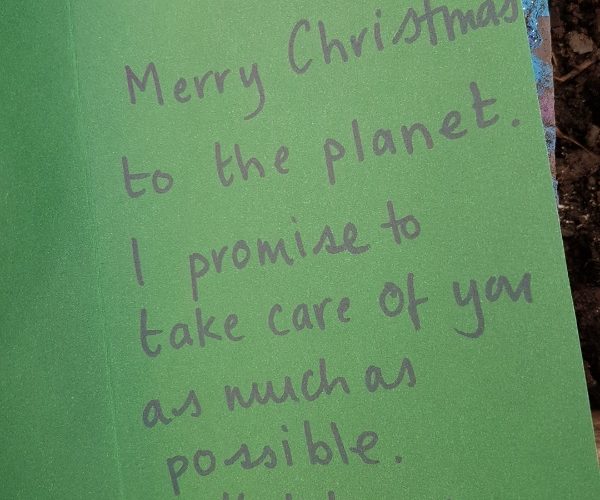 Merry Christmas
to the planet.
I promise to
take care of you
as much as
possible.